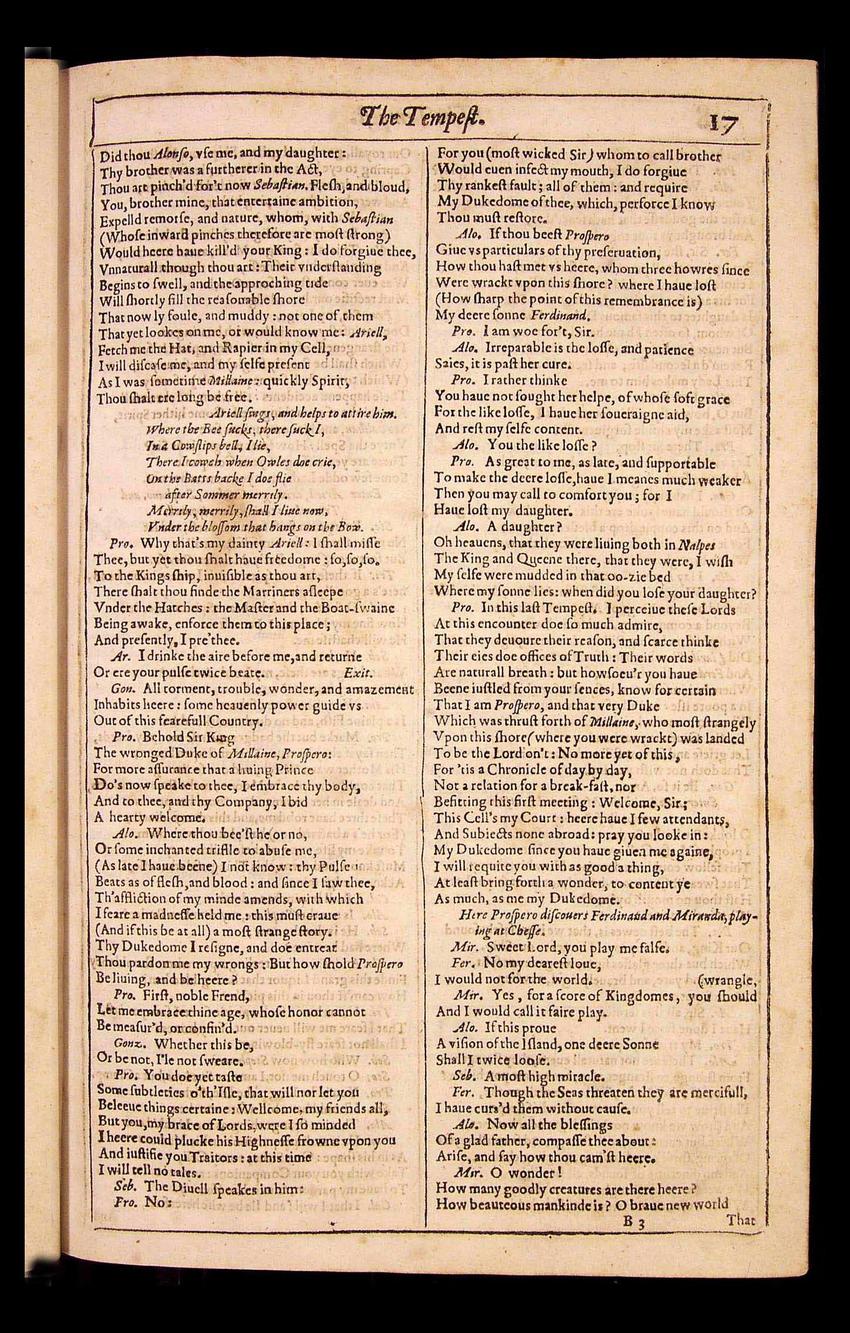 The Tempeſt.
17
Did thou Alonſo, vſe me, and my daughter:
Thy brother was a furtherer in the Act,
Thou art pinch'd for't now Sebaſtian. Fleſh, and bloud,
You, brother mine, that entertaine ambition,
Expelld remorſe, and nature, whom, with Sebaſtian
(Whoſe inward pinches therefore are moſt ſtrong)
Would heere haue kill'd your King: I do forgiue thee,
Vnnaturall though thou art: Their vnderſtanding
Begins to ſwell, and the approching tide
Will ſhortly fill the reaſonable ſhore
That now ly foule, and muddy: not one of them
That yet lookes on me, or would know me: Ariell,
Fetch me the Hat, and Rapier in my Cell,
I will diſcaſe me, and my ſelfe preſent
As I was ſometime Millaine: quickly Spirit,
Thou ſhalt ere long be free.
Ariell ſings, and helps to attire him.
Where the Bee ſucks, there ſuck I,
In a Cowſlips bell, I lie,
There I cowch when Owles doe crie,
On the Batts backe I doe flie
after Sommer merrily.
Merrily, merrily, ſhall I liue now,
Vnder the bloſſom that hangs on the Bow.
Pro. Why that's my dainty Ariell: I ſhall miſſe
Thee, but yet thou ſhalt haue freedome: ſo, ſo, ſo.
To the Kings ſhip, inuiſible as thou art,
There ſhalt thou finde the Marriners aſleepe
Vnder the Hatches: the Maſter and the Boat-ſwaine
Being awake, enforce them to this place;
And preſently, I pre'thee.
Ar. I drinke the aire before me, and returne
Or ere your pulſe twice beate. Exit.
Gon. All torment, trouble, wonder, and amazement
Inhabits heere: ſome heauenly power guide vs
Out of this fearefull Country.
Pro. Behold Sir King
The wronged Duke of Millaine, Proſpero:
For more aſſurance that a liuing Prince
Do's now ſpeake to thee, I embrace thy body,
And to thee, and thy Company, I bid
A hearty welcome.
Alo. Where thou bee'ſt he or no,
Or ſome inchanted triflle to abuſe me,
(As late I haue beene) I not know: thy Pulſe
Beats as of fleſh, and blood: and ſince I ſaw thee,
Th'affliction of my minde amends, with which
I feare a madneſſe held me: this muſt craue
(And if this be at all) a moſt ſtrange ſtory.
Thy Dukedome I reſigne, and doe entreat
Thou pardon me my wrongs: But how ſhold Proſpero
Be liuing, and be heere?
Pro. Firſt, noble Frend,
Let me embrace thine age, whoſe honor cannot
Be meaſur'd, or confin'd.
Gonz. Whether this be,
Or be not, I'le not ſweare.
Pro. You doe yet taſte
Some ſubtleties o'th'Iſle, that will nor let you
Beleeue things certaine: Wellcome, my friends all,
But you, my brace of Lords, were I ſo minded
I heere could plucke his Highneſſe frowne vpon you
And iuſtifie you Traitors: at this time
I will tell no tales.
Seb. The Diuell ſpeakes in him:
Pro. No:
For you (moſt wicked Sir) whom to call brother
Would euen infect my mouth, I do forgiue
Thy rankeſt fault; all of them: and require
My Dukedome of thee, which, perforce I know
Thou muſt reſtore.
Alo. If thou beeſt Proſpero
Giue vs particulars of thy preſeruation,
How thou haſt met vs heere, whom three howres ſince
Were wrackt vpon this ſhore? where I haue loſt
(How ſharp the point of this remembrance is)
My deere ſonne Ferdinand.
Pro. I am woe for't, Sir.
Alo. Irreparable is the loſſe, and patience
Saies, it is paſt her cure.
Pro. I rather thinke
You haue not ſought her helpe, of whoſe ſoft grace
For the like loſſe, I haue her ſoueraigne aid,
And reſt my ſelfe content.
Alo. You the like loſſe?
Pro. As great to me, as late, and ſupportable
To make the deere loſſe, haue I meanes much weaker
Then you may call to comfort you; for I
Haue loſt my daughter.
Alo. A daughter?
Oh heauens, that they were liuing both in Nalpes
The King and Queene there, that they were, I wiſh
My ſelfe were mudded in that oo-zie bed
Where my ſonne lies: when did you loſe your daughter?
Pro. In this laſt Tempeſt. I perceiue theſe Lords
At this encounter doe ſo much admire,
That they deuoure their reaſon, and ſcarce thinke
Their eies doe offices of Truth: Their words
Are naturall breath: but howſoeu'r you haue
Beene iuſtled from your ſences, know for certain
That I am Proſpero, and that very Duke
Which was thruſt forth of Millaine, who moſt ſtrangely
Vpon this ſhore (where you were wrackt) was landed
To be the Lord on't: No more yet of this,
For 'tis a Chronicle of day by day,
Not a relation for a break-faſt, nor
Befitting this firſt meeting: Welcome, Sir;
This Cell's my Court: heere haue I few attendants,
And Subiects none abroad: pray you looke in:
My Dukedome ſince you haue giuen me againe,
I will requite you with as good a thing,
At leaſt bring forth a wonder, to content ye
As much, as me my Dukedome.
Here Proſpero diſcouers Ferdinand and Miranda, play-
ing at Cheſſe.
Mir. Sweet Lord, you play me falſe.
Fer. No my deareſt loue,
I would not for the world. (wrangle,
Mir. Yes, for a ſcore of Kingdomes, you ſhould
And I would call it faire play.
Alo. If this proue
A viſion of the Iſland, one deere Sonne
Shall I twice looſe.
Seb. A moſt high miracle.
Fer. Though the Seas threaten they are mercifull,
I haue curs'd them without cauſe.
Alo. Now all the bleſſings
Of a glad father, compaſſe thee about:
Ariſe, and ſay how thou cam'ſt heere.
Mir. O wonder!
How many goodly creatures are there heere?
How beauteous mankinde is? O braue new world
B 3 That